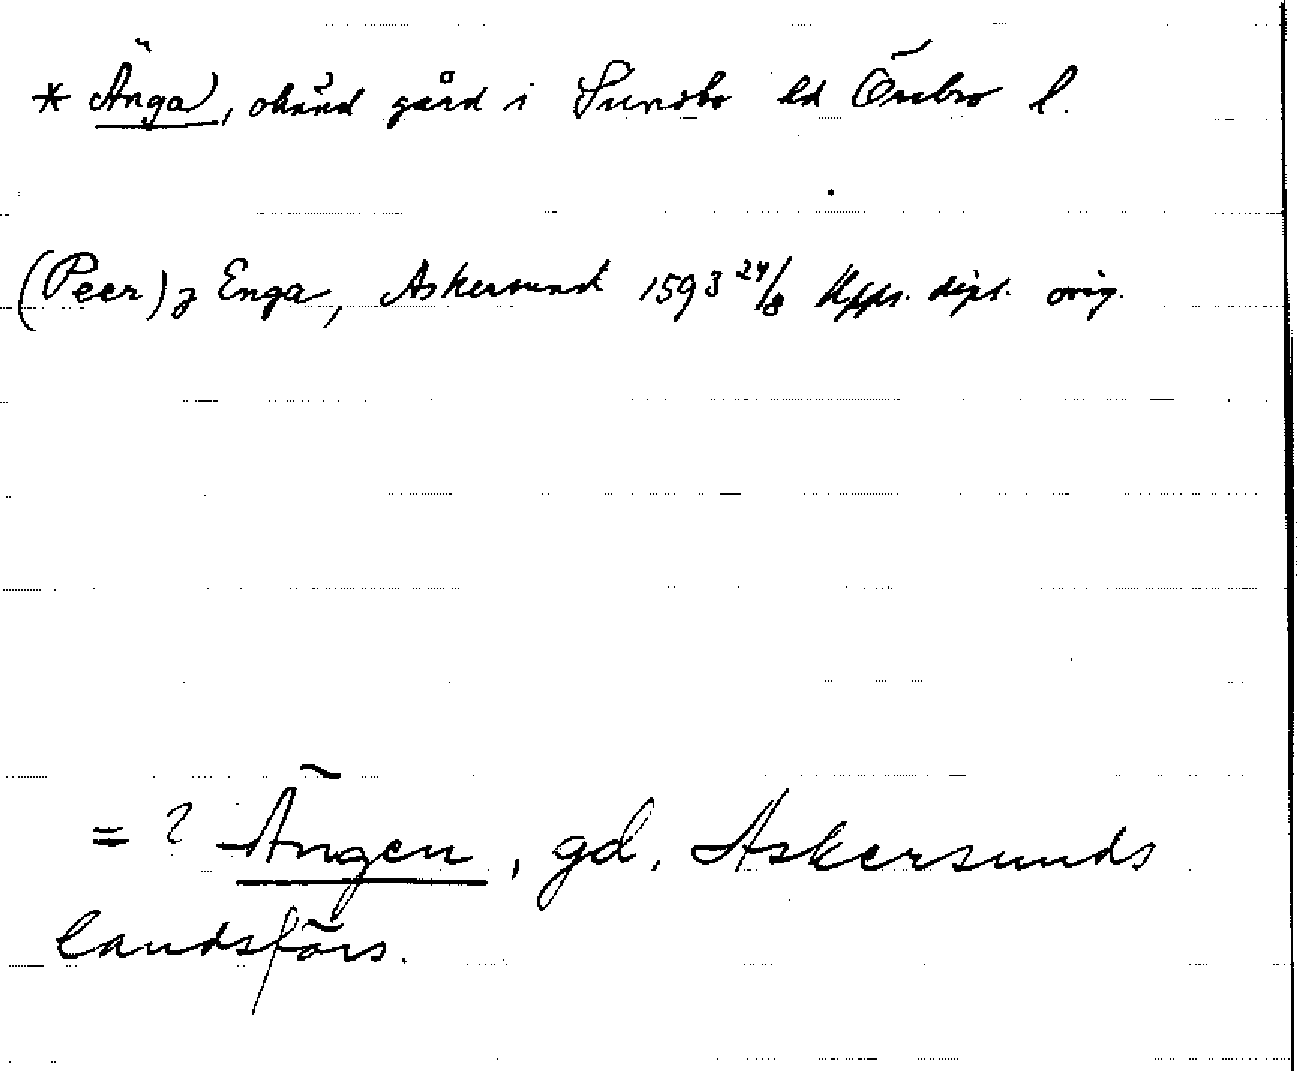 * Änga, okänd gård i Sundbo hd Örebro l.
(Peer) j Enga, Askersund 1593 24/8 Kpps. dipl. orig.
= ? Ängen, gd, Askersunds
landsförs.